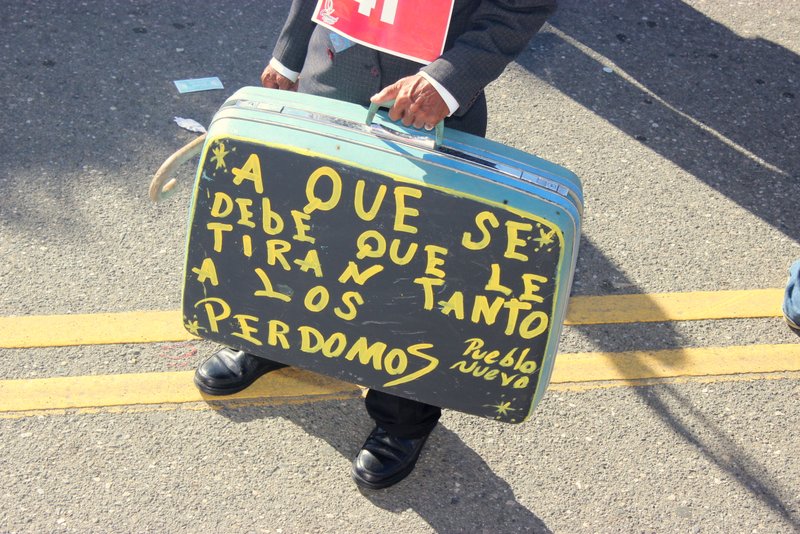 41
A QUE SE
DEBE QUE LE
TIRAN TANTO
A LOS
PERDOMOS
Pueblo
Nuevo